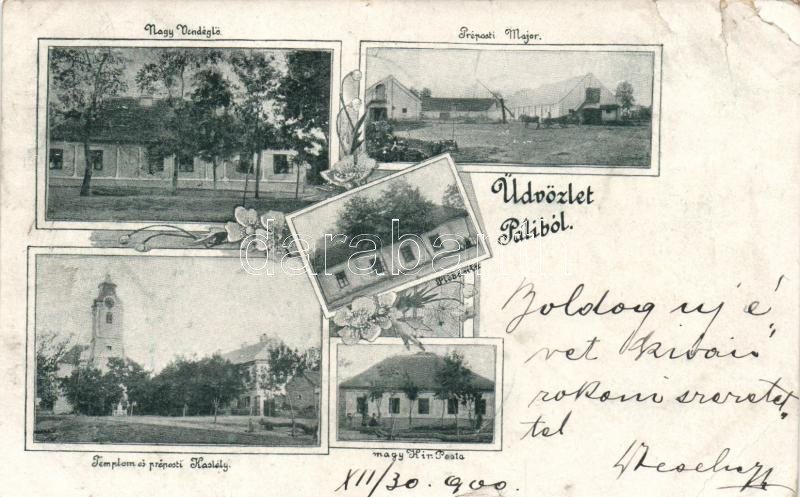 Nagy Vendéglő.
Préposti Major.
Üdvözlet
Páliból.
Plébánia.
darabanth
Templom és préposti Kastély.
magy Kir. Posta
Boldog uj é
vet kiván
rokoni szeretet
tel
XII/30. 900.